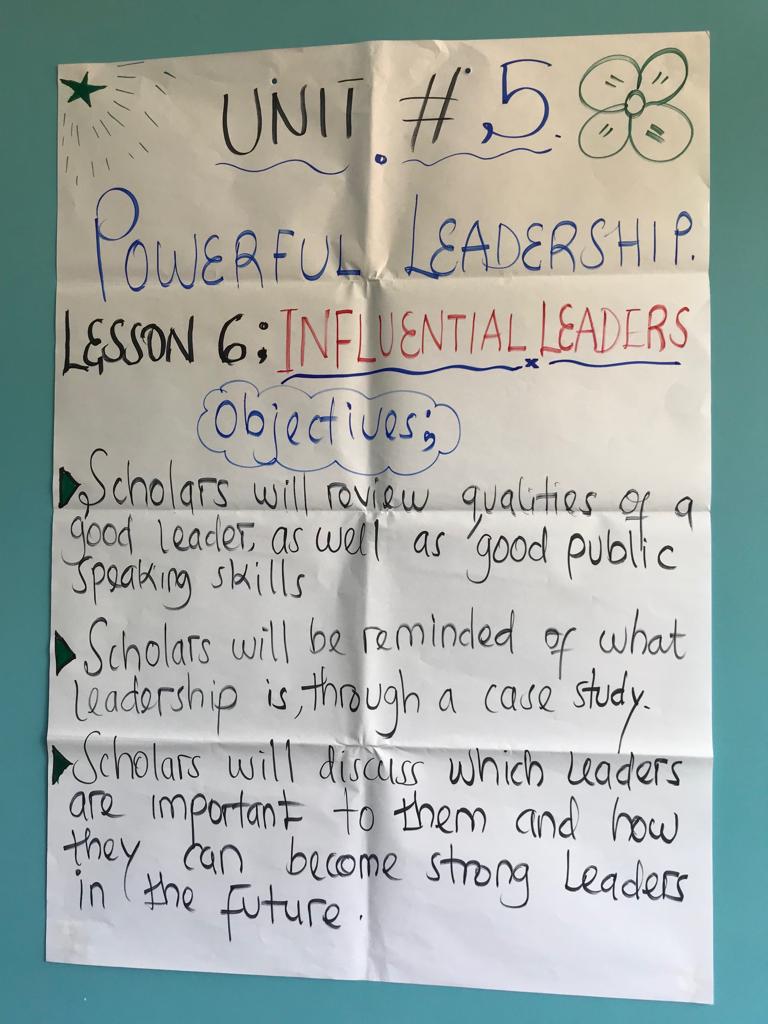 UNIT #.5.
POWERFUL LEADERSHIP.
LESSON 6; INFLUENTIAL LEADERS
Objectives;
Scholars will review qualities of a
good leader, as well as good public
speaking skills
Scholars will be reminded of what
leadership is, through a case study.
Scholars will discuss which leaders
are important to them and how
they can become strong leaders
in the future.